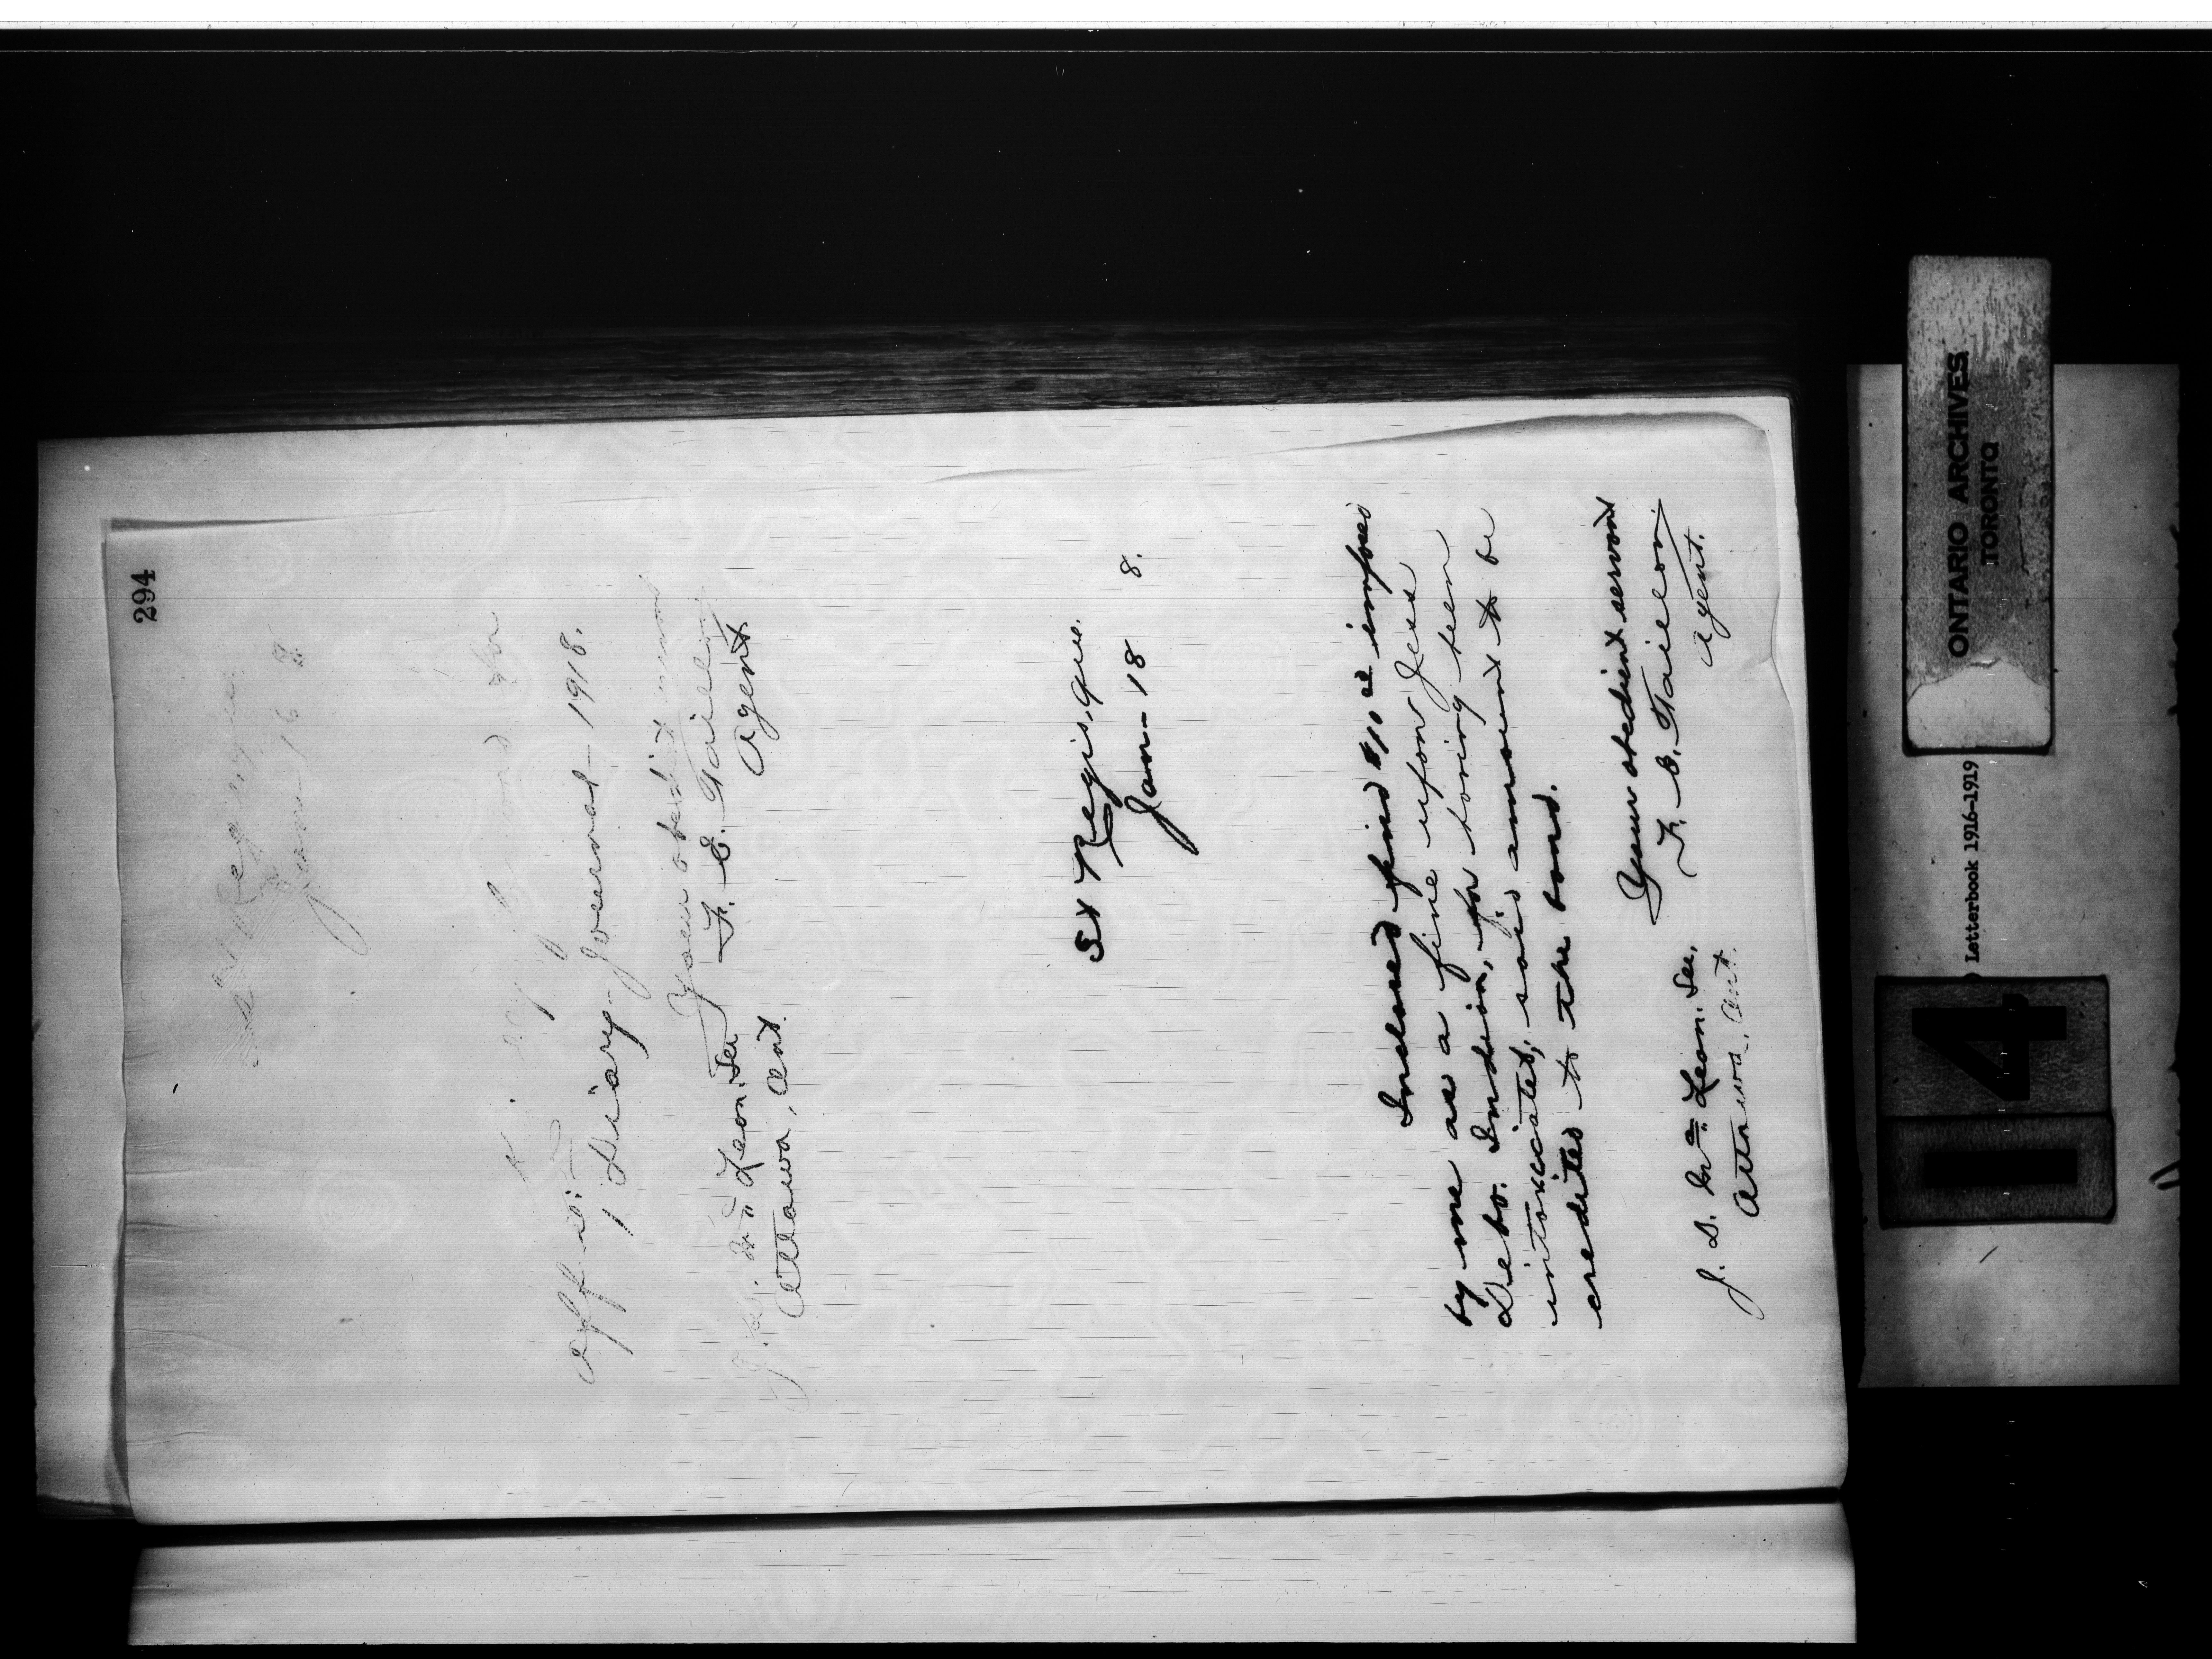 294
St Regis, Que.
Jan - 16 8
Kindly for
office:
1 Diary-Journal - 1918.
Your obedient servant
F. E. Taillon
Agent
J. D. McLean. Sec
Ottawa, Ont.
St Regis, Que.
Jan - 18 8.
Inclosed find $10 00 imposed
by me as a fine upon Jess
Debo. Indian, for having been
intoxicated; said ammount to be
credited to the band.
Your obedient servant
F. E. Taillon
Agent.
J. D. Mc Lean. Sec,
Ottawa, Ont.
ONTARIO ARCHIVES
TORONTO
Letterbook 1916-1919
14